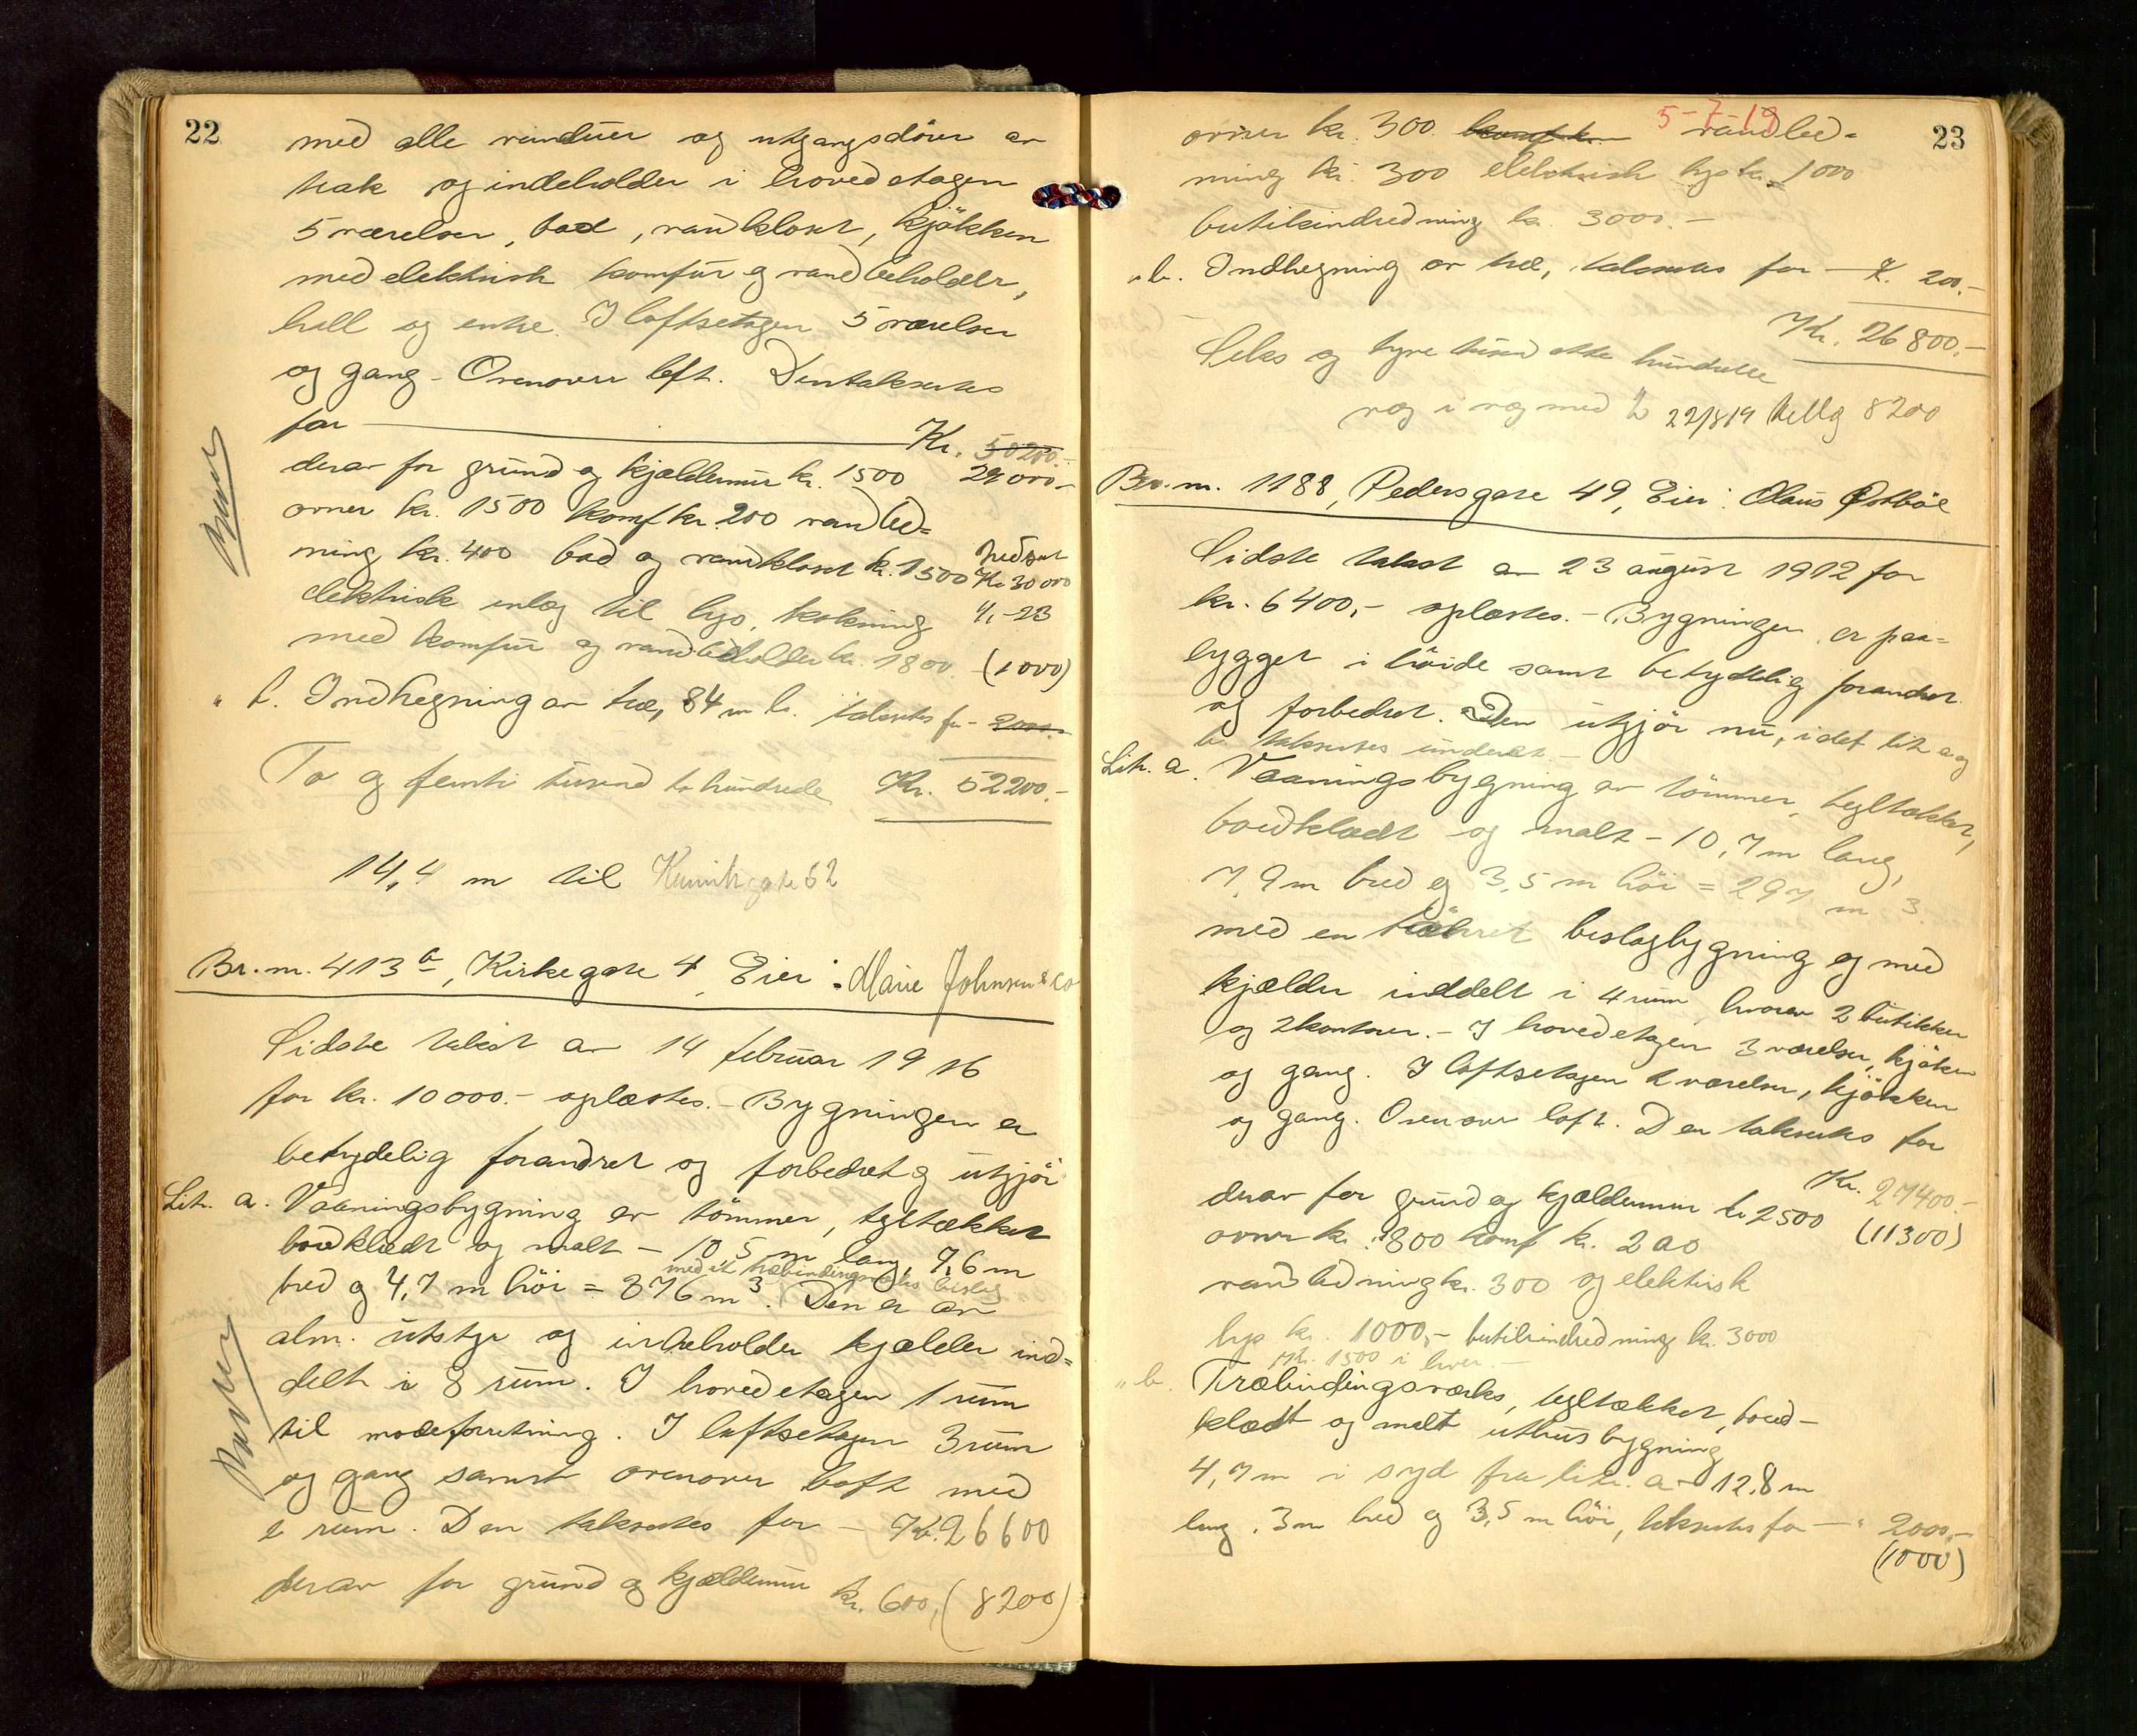 22
med alle vinduer og utgangsdører av
teak og indeholder i hovedetagen
5 værelser, bad, vandklosct, kjøkken
med elektrisk komfur og vandbeholder,
hall og entre. I loftsetagen 5 værelser
og gang - Ovenover loft. Den takseres
for Kr. 50200.-
derav for grund og kjældermur kr. 1500 29000.-
ovner kr. 1500 komf kr. 200 vandled=
ning kr. 400 bad og vandklosct kr. 1500 Nedsat Kr 30000
elektrisk inlæg til lys, kokning 4.-23
med komfur og vandbeholder kr. 1800. (1000)
" b. Indhegning av træ, 84 m l. takseres for - 2000.-
To og femti tusind to hundrede Kr. 52200.-
14,4 m til Kunikgate 62
Br. nr. 413 b, Kirkegate 4, Eier: Marie Johnsen & Co
Sidste takst av 14 februar 1916
for kr. 10000.- oplæstes. - Bygningen er
betydelig forandret og forbedret og utgjør
Litr. a. Vaaningsbygning av tømmer, tegltækket
bordklædt og malt - 10,5 m lang, 7,6 m
med et træbindingsverks bislag
bred og 4,7 m høi = 376 m³. Den er av
alm. utstyr og indeholder kjælder ind=
delt i 3 rum. I hovedetagen 1 rum
til modeforretning. I loftsetagen 3 rum
og gang samt ovenover loft med
2 rum. Den takseres for - Kr. 26600
derav for grund og kjældermur kr. 600, (8200)
23
5-7-19
ovner kr. 300. komf kr. vandled=
ning kr. 300 elektrisk lys kr. 1000
butikindredning kr. 3000.-
" b. Indhegning av træ, takseres for - K. 200.-
Kr. 26800.-
Seks og tyve tusind otte hundrede
22/8/19 tillæg 8200
Br. nr. 1188, Pedersgate 49, Eier: Olaus Østbøe
Sidste takst av 23 august 1912 for
kr. 6400,- oplæstes. - Bygningen er paa=
bygget i høide samt betydelig forandret
og forbedret. Den utgjør nu, idet lit a og
b. takseres underet -
Litr. a. Vaaningsbygning av tømmer, tegltækket,
bordklædt og malt - 10,7 m lang,
7,9 m bred og 3,5 m høi = 297 m³.
med en bislagbygning og med
kjælder inddelt i 4 rum, hvorav 2 butikker
og 2 kontorer. - I hovedetagen 3 værelser, kjøken
og gang. I loftsetagen 2 værelser, kjøkken
og gang. Ovenover loft. Den takseres for
Kr. 27400.-
derav for grund og kjældermur kr 2500 (11300)
ovner kr. 800 komf kr. 200
vandledning kr. 300 og elektrisk
lys kr. 1000,- butikindredning kr. 3000
Kr. 1500 i hver. -
" b. Træbindingsværks, tegltækket, bord-
klædt og malt uthusbygning
4,7 m i syd fra litr. a - 12,8 m
lang, 3 m bred og 3,5 m høi, takseres for - " 2000.-
(1000)